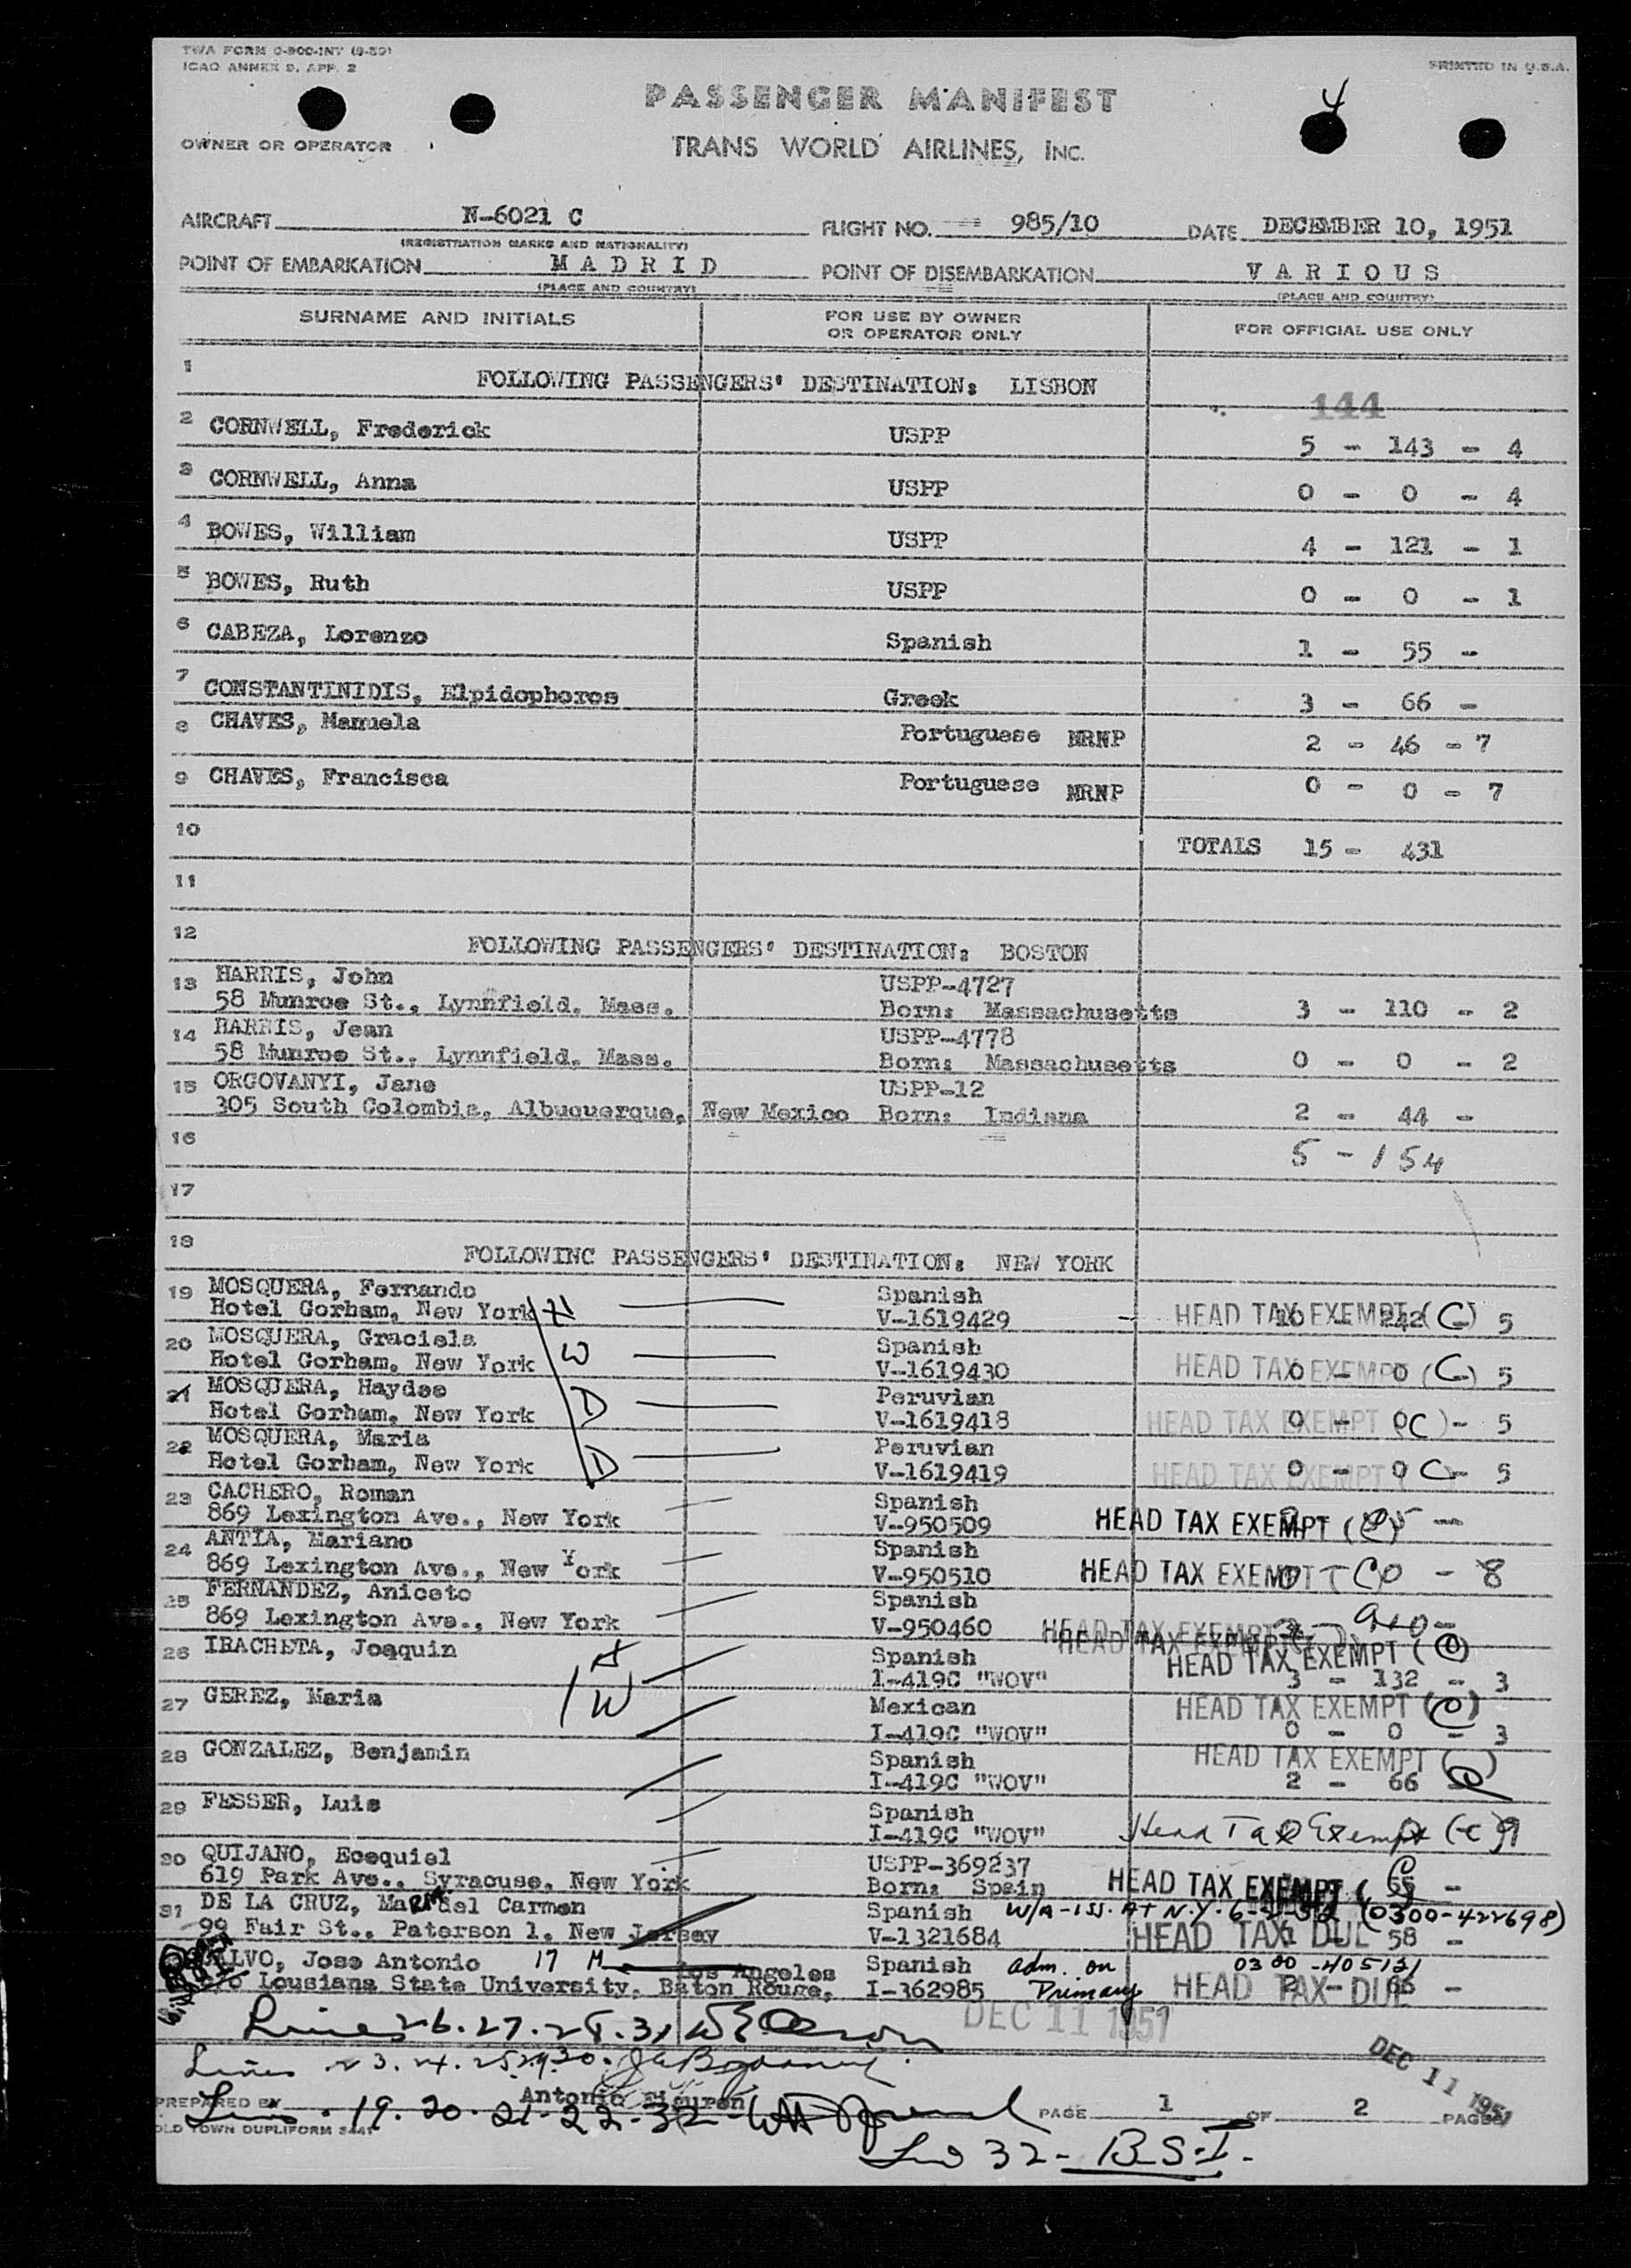 TWA FORM O-800-INT (9-50)
ICAO ANNEX 9, APP. 2
PRINTED IN U.S.A.
PASSENGER MANIFEST
4
OWNER OR OPERATOR
TRANS WORLD AIRLINES, INC.
AIRCRAFT N-6021 C FLIGHT NO. 985/10 DATE DECEMBER 10, 1951
(REGISTRATION MARKS AND NATIONALITY)
POINT OF EMBARKATION MADRID POINT OF DISEMBARKATION VARIOUS
(PLACE AND COUNTRY) (PLACE AND COUNTRY)
SURNAME AND INITIALS FOR USE BY OWNER OR OPERATOR ONLY FOR OFFICIAL USE ONLY
1 FOLLOWING PASSENGERS' DESTINATION: LISBON
144
2 CORNWELL, Frederick USPP 5 - 143 - 4
3 CORNWELL, Anna USPP 0 - 0 - 4
4 BOWES, William USPP 4 - 121 - 1
5 BOWES, Ruth USPP 0 - 0 - 1
6 CABEZA, Lorenzo Spanish 1 - 55 -
7 CONSTANTINIDIS, Elpidophoros Greek 3 - 66 -
8 CHAVES, Manuela Portuguese MRNP 2 - 46 - 7
9 CHAVES, Francisca Portuguese MRNP 0 - 0 - 7
10 TOTALS 15 - 431
11
12 FOLLOWING PASSENGERS' DESTINATION: BOSTON
13 HARRIS, John USPP-4727
58 Munroe St., Lynnfield, Mass. Born: Massachusetts 3 - 110 - 2
14 HARRIS, Jean USPP-4778
58 Munroe St., Lynnfield, Mass. Born: Massachusetts 0 - 0 - 2
15 ORGOVANYI, Jane USPP-12
305 South Colombia, Albuquerque, New Mexico Born: Indiana 2 - 44 -
16 5 - 154
17
18 FOLLOWINC PASSENGERS' DESTINATION: NEW YORK
19 MOSQUERA, Fernando Spanish
Hotel Gorham, New York H V-1619429 HEAD TAX EXEMPT (C) 10 - 242 - 5
20 MOSQUERA, Graciela Spanish
Hotel Gorham, New York W V-1619430 HEAD TAX EXEMPT (C) 0 - 0 - 5
21 MOSQUERA, Haydee Peruvian
Hotel Gorham, New York D V-1619418 HEAD TAX EXEMPT (C) 0 - 0 - 5
22 MOSQUERA, Maria Peruvian
Hotel Gorham, New York D V-1619419 HEAD TAX EXEMPT C 0 - 0 - 5
23 CACHERO, Roman Spanish
869 Lexington Ave., New York V-950509 HEAD TAX EXEMPT
24 ANTIA, Mariano Spanish
869 Lexington Ave., New York V-950510 HEAD TAX EXEMPT (C) 0 - 8
25 FERNANDEZ, Aniceto Spanish
869 Lexington Ave., New York V-950460 HEAD TAX EXEMPT
HEAD TAX EXEMPT
26 IRACHETA, Joaquin H Spanish HEAD TAX EXEMPT (C)
I-419C "WOV" 3 - 132 - 3
27 GEREZ, Maria W Mexican HEAD TAX EXEMPT (C)
I-419C "WOV" 0 - 0 - 3
28 GONZALEZ, Benjamin Spanish HEAD TAX EXEMPT
I-419C "WOV" 2 - 66
29 FESSER, Luis Spanish
I-419C "WOV" Head Tax Exempt (C) 9
30 QUIJANO, Ecequiel USPP-369237
619 Park Ave., Syracuse, New York Born: Spain HEAD TAX EXEMPT
31 DE LA CRUZ, Maria del Carmen Spanish W/A - iss. At N.Y. (0300-422698)
99 Fair St., Paterson 1, New Jersey V-1321684 HEAD TAX DUE 58 -
CALVO, Jose Antonio 17 M Los Angeles Spanish adm. on 0300-405131
Lousiana State University, Baton Rouge, I-362985 Primary HEAD TAX DUE 66 -
Lines 26.27.28.31
DEC 11 1951
Lines 23.24.25.29.30.
DEC 11 1951
PREPARED BY Antonio Figuren PAGE 1 OF 2 PAGES
Lines. 19.20.21-22-32
OLD TOWN DUPLIFORM 3441
32 - B.S.I.